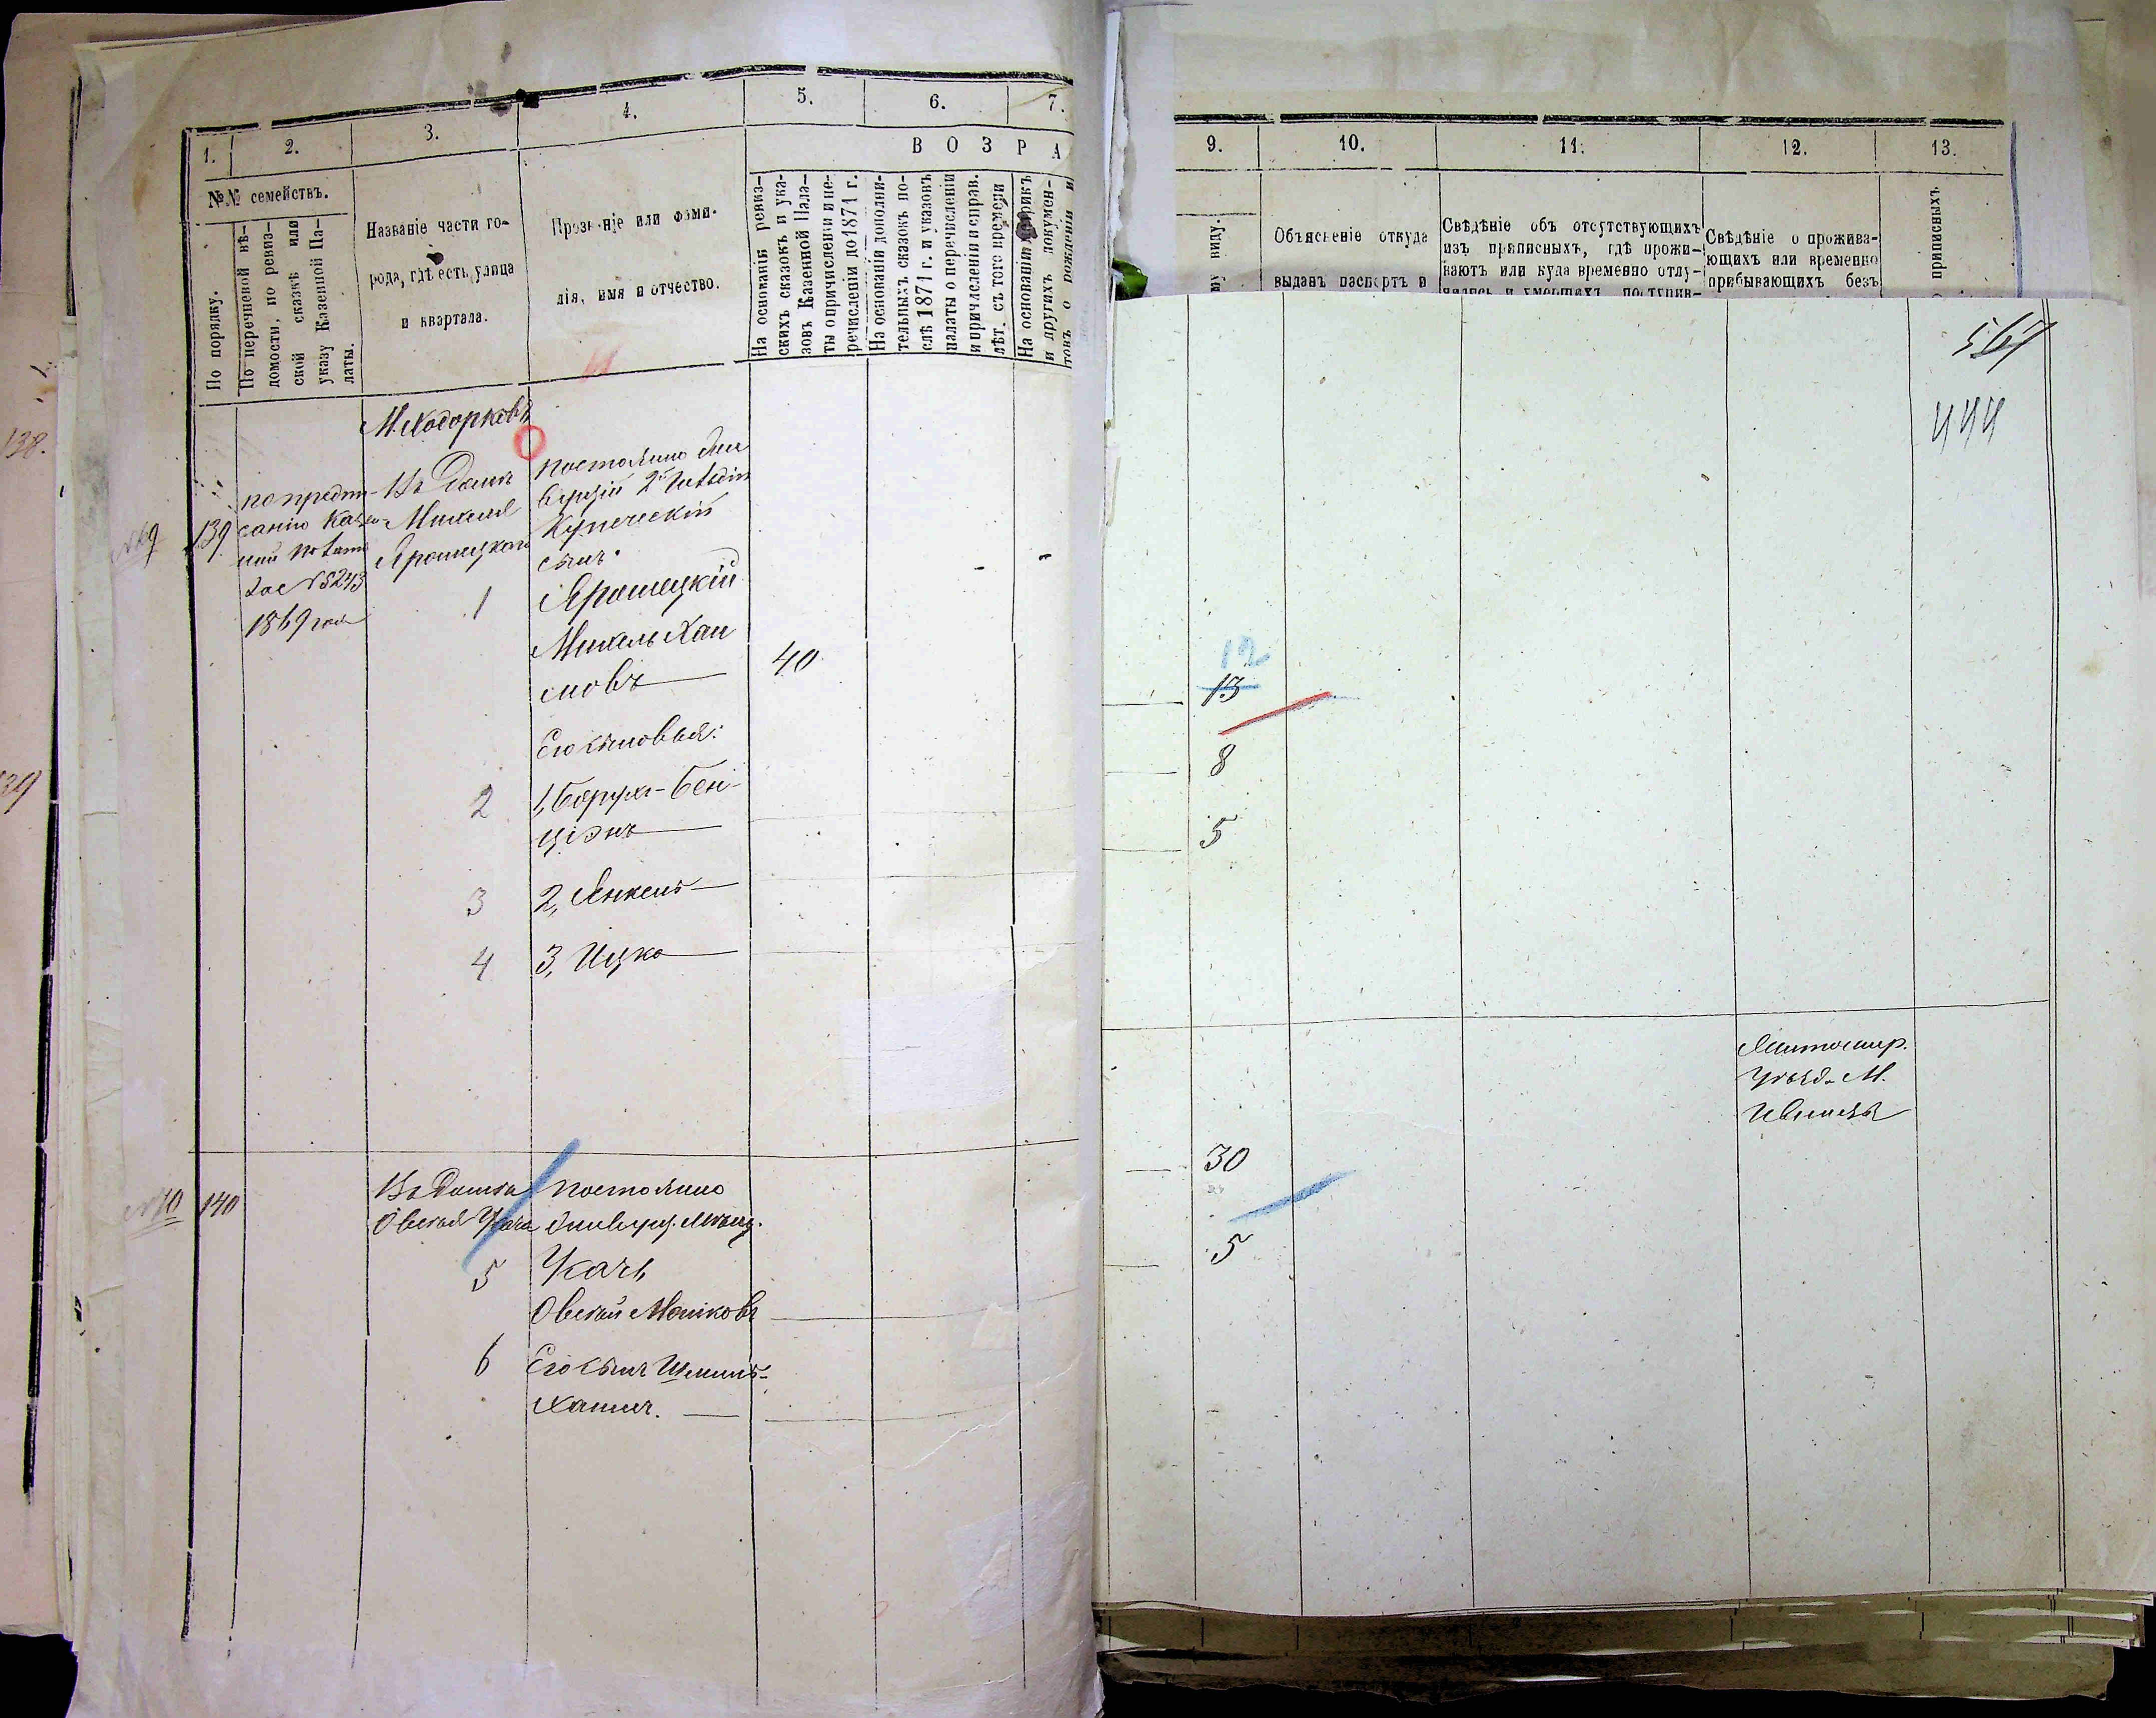 1.
2.
3.
4.
5.
6.
7.
В О З Р А
№№ семействъ.
По порядку.
По перечневой вѣ-
домости, по ревиз-
ской сказкѣ или
указу Казенной Па-
латы.
Названіе части го-
рода, гдѣ есть улица
и квартала.
Прозваніе или фами-
лія, имя и отчество.
На основаніи ревиз-
скихъ сказокъ и ука-
зовъ Казенной Пала-
ты о причисленіи и пе-
речисленіи до 1871 г.
На основаніи дополни-
тельныхъ сказокъ по-
слѣ 1871 г. и указовъ
палаты о перечисленіи
и причисленіи и справ.
лѣт. съ того времени
На основаніи метрикъ
и другихъ докумен-
товъ о рожденіи и
138.
39
М. Ходорковъ
139
по предпи-
санію Казен-
ной Палаты
1869 года
Въ домѣ
Михеля
Ярошецкаго
Постоянно жи
вущій 2й гильдіи
Купеческій
сынъ.
1
Ярошецкій
Михель Хаи
мовъ
40
Его сыновья:
2
1, Борухъ-Бен-
ціонъ
3
2, Янкель
4
3, Ицко
№70
140
Въ домѣ
Овсѣя Ткача
Постоянно
живущ. мѣщ.
5
Ткачъ
Овсѣй Мошковъ
6
Его сынъ Шмиль-
Хаимъ.
9.
10.
11.
12.
13.
виду.
Объясненіе откуда
выданъ паспортъ и
Свѣдѣніе объ отсутствующихъ
изъ приписныхъ, гдѣ прожи-
ваютъ или куда временно отлу-
чились и умершихъ, поступив-
Свѣдѣніе о прожива-
ющихъ или временно
прибывающихъ безъ
приписныхъ
567
444
12
13
8
5
Житомир.
Уѣзд. М.
30
5